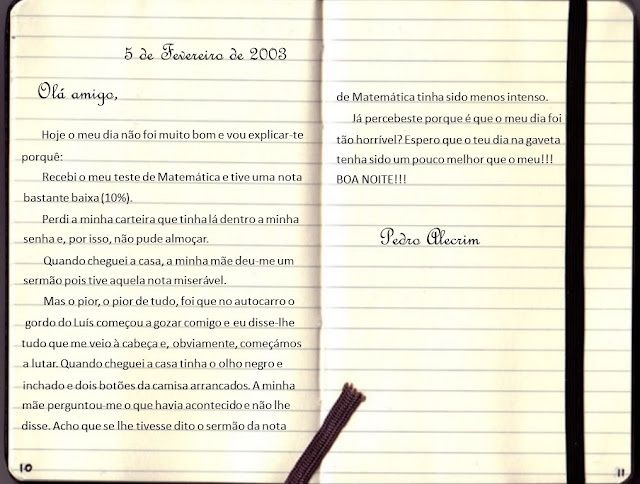 5 de Fevereiro de 2003
Olá amigo,
Hoje o meu dia não foi muito bom e vou explicar-te
porquê:
Recebi o meu teste de Matemática e tive uma nota
bastante baixa (10%).
Perdi a minha carteira que tinha lá dentro a minha
senha e, por isso, não pude almoçar.
Quando cheguei a casa, a minha mãe deu-me um
sermão pois tive aquela nota miserável.
Mas o pior, o pior de tudo, foi que no autocarro o
gordo do Luís começou a gozar comigo e eu disse-lhe
tudo que me veio à cabeça e, obviamente, começámos
a lutar. Quando cheguei a casa tinha o olho negro e
inchado e dois botões da camisa arrancados. A minha
mãe perguntou-me o que havia acontecido e não lhe
disse. Acho que se lhe tivesse dito o sermão da nota
10
de Matemática tinha sido menos intenso.
Já percebeste porque é que o meu dia foi
tão horrível? Espero que o teu dia na gaveta
tenha sido um pouco melhor que o meu!!!
BOA NOITE!!!
Pedro Alecrim
11